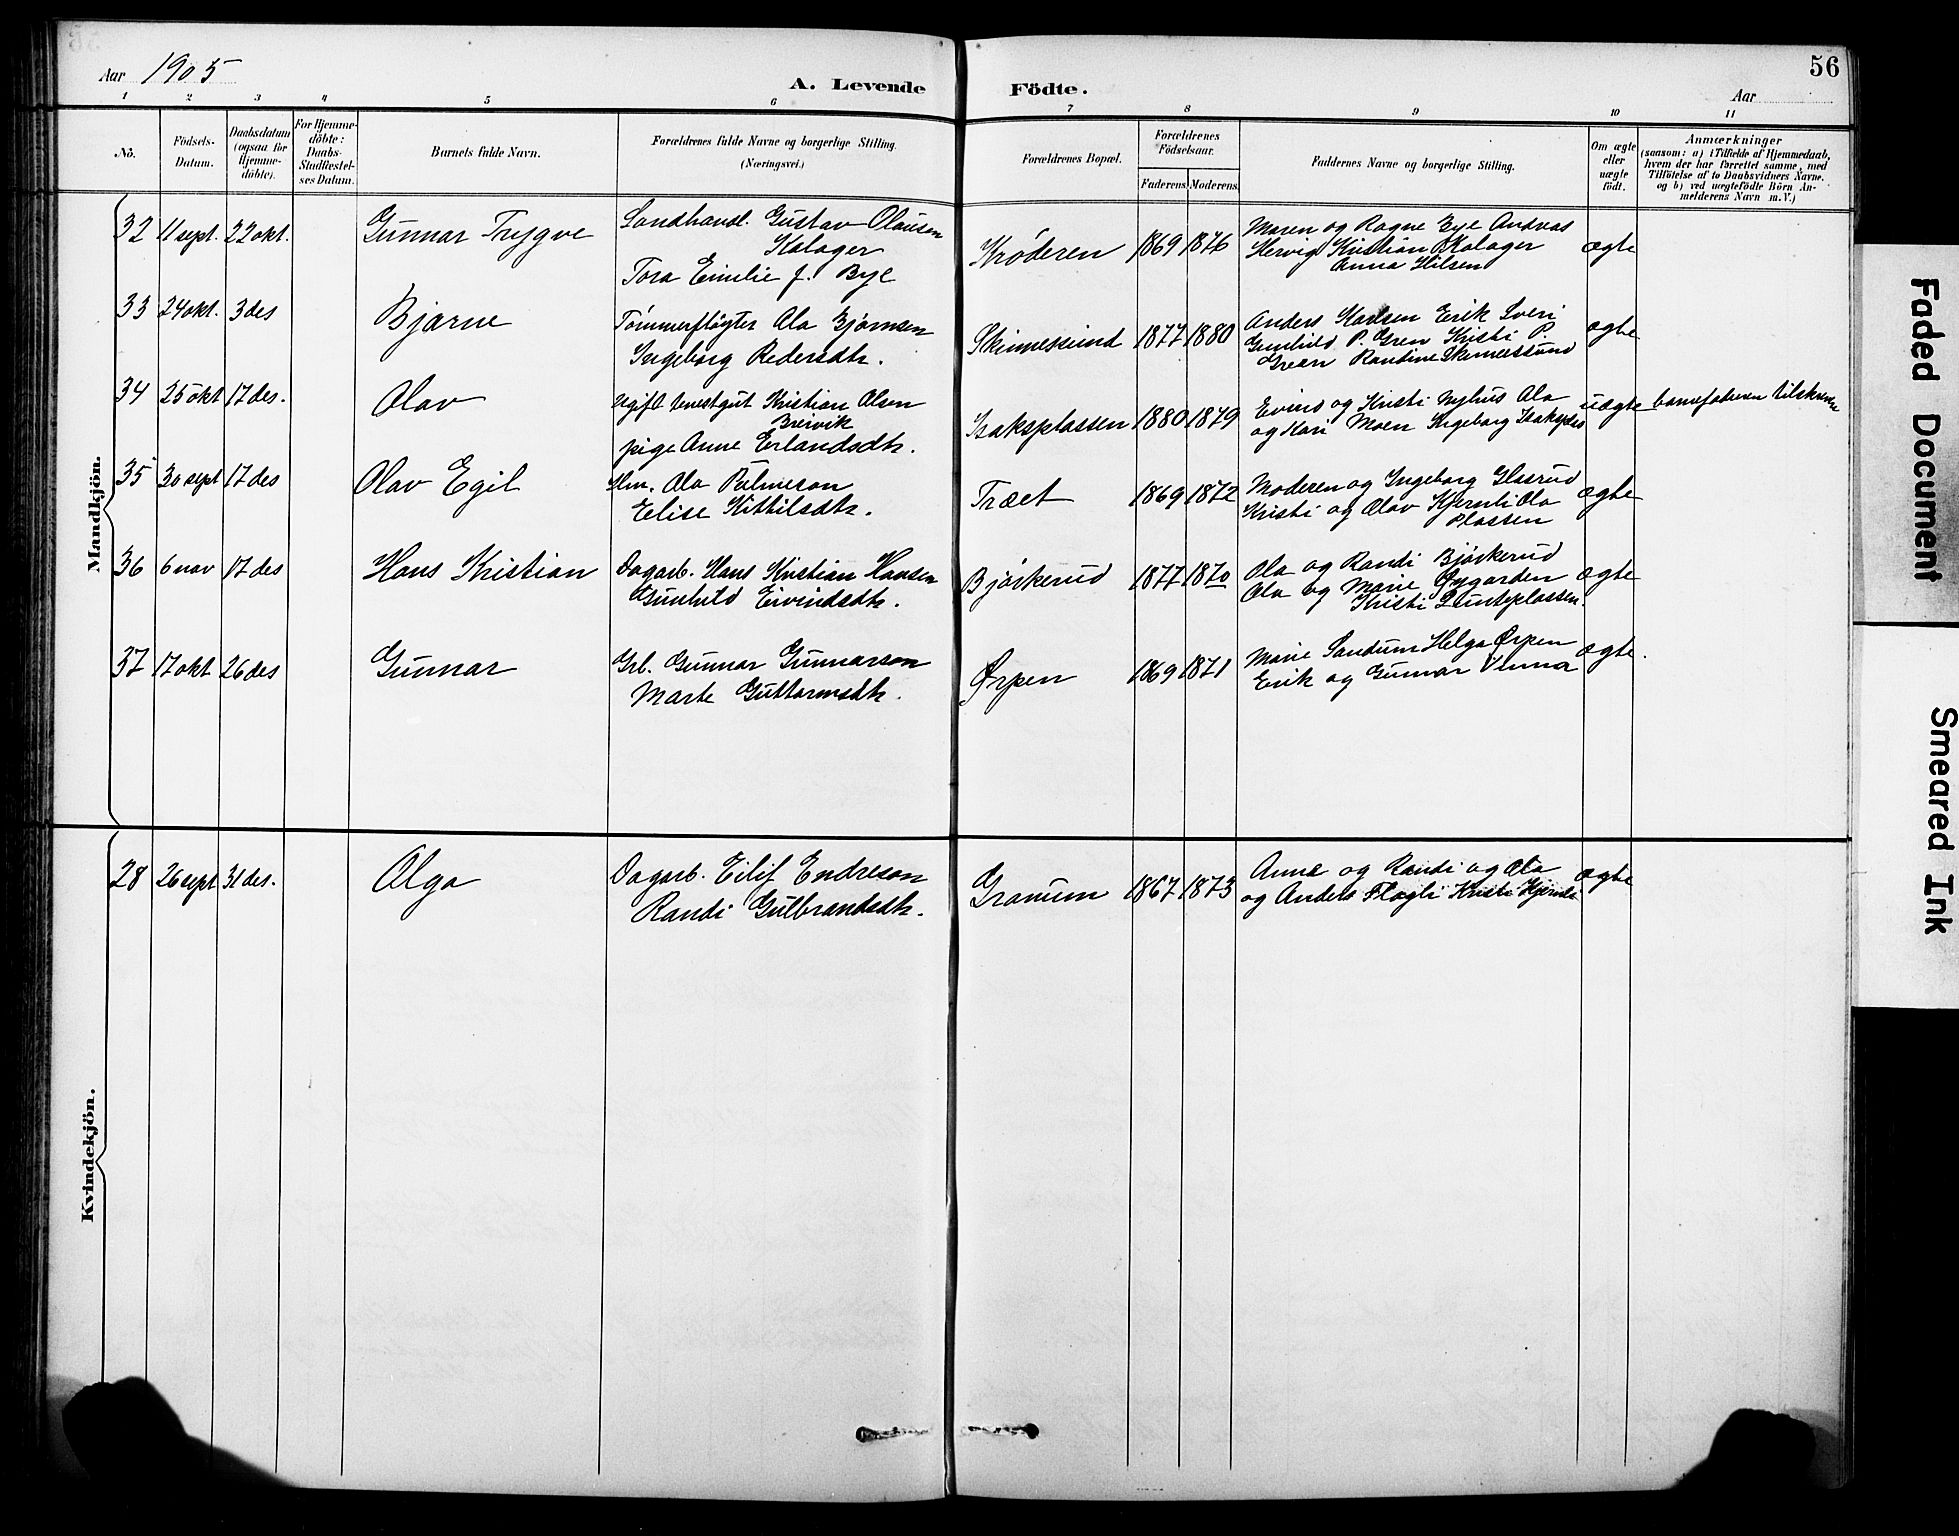 Aar 1905
A. Levende Födte.
56
Aar
1 2 3 4 5 6 7 8 9 10 11
No.
Födsels-Datum.
Daabsdatum (ogsaa for Hjemme-döbte).
For Hjemme-döbte: Daabs-Stadfæstel-ses Datum.
Barnets fulde Navn.
Forældrenes fulde Navne og borgerlige Stilling. (Næringsvei.)
Forældrenes Bopæl.
Forældrenes Födselsaar.
Faderens Moderens
Faddernes Navne og borgerlige Stilling.
Om ægte eller uægte födt.
Anmærkninger
(saasom: a) i Tilfælde af Hjemmedaab, hvem der har forrettet samme, med Tilföielse af to Daabsvidners Navne. og b) ved uægtefödte Börn An-melderens Navn m.V.)
Mandkjön.
32 11 sept. 22 okt. Gunnar Trygve
Landhandl. Gustav Olausen
Kalager
Tora Emilie f. Bye
Krøderen 1869 1876
Maren og Ragne Bye Andreas
Hervig Kristian Kalager
Anna Nilsen
ægte
33 24 okt. 3 des Bjarne
Tømmerfløgter Ola Bjørnsen
Ingeborg Pedersdtr.
Skinnessund 1877 1880
Anders Karlsen Erik Sveri
Gunhild P. Gren Kristi P.
Green Randine Skinnessund
ægte
34 25 okt 17 des. Olav
Ugift tenestgut Kristian Olsen
Brevik
pige Anne Erlandsdtr.
Isaksplassen 1880 1879
Eivind og Kristi Nyhus Ola
og Kari Moen Ingeborg Isakspl
uægte barnefaderen tilskreven
35 30 sept 17 des Olav Egil
Hm. Ola Palmeson
Elise Kittilsdtr.
Træet 1869 1872
Moderen og Ingeborg Glasrud
Kristi og Olav Kjernli Ola
Plassen
ægte
36 6 nov 17 des Hans Kristian
Dagarb. Hans Kristian Hansen
Gunhild Eivindsdtr.
Bjørkerud 1877 1870
Ola og Randi Bjørkerud
Ola og Marie Øygarden
Kristi Lunteplassen.
ægte
37 17 okt 26 des Gunnar
Grb. Gunnar Gunnarson
Marte Guttormsdtr.
Ørpen 1869 1871
Marie Sandum Helga Ørpen
Erik og Gunnar Vinna
ægte.
Kvindekjön.
28 26 sept 31 des. Olga
Dagarb. Eilif Endreson
Randi Gulbrandsdtr.
Granum 1867 1873
Anne og Randi og Ola
og Anders Flagli Kristi Kjernli
ægte
Faded Document
Smeared Ink